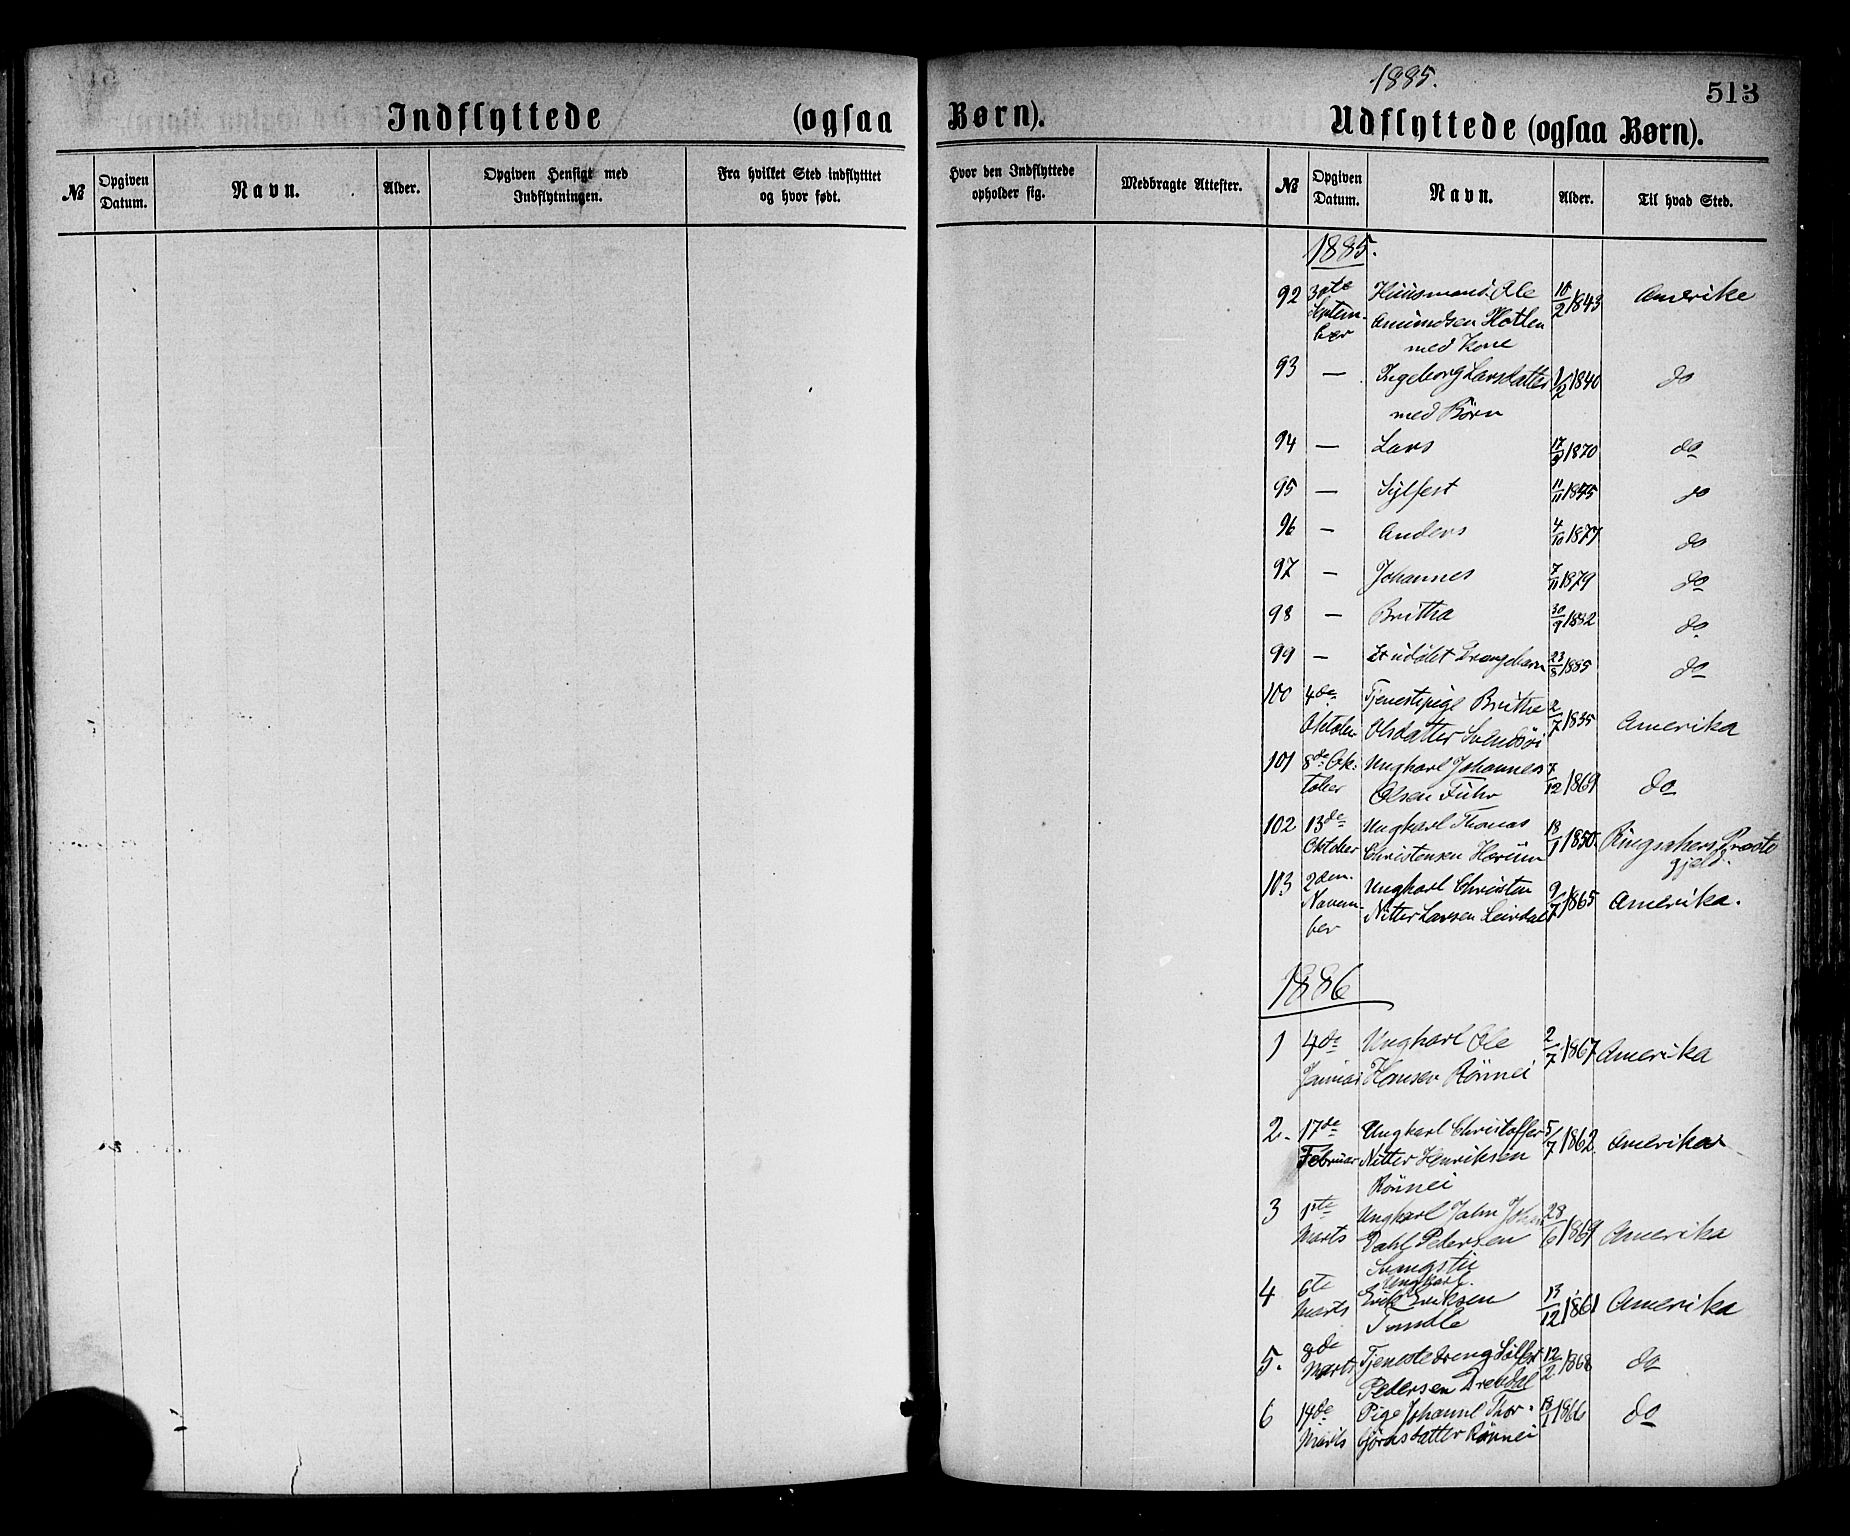 1885.
513
Indflyttede (ogsaa Børn).
Udflyttede (ogsaa Børn).
№ Opgiven Datum. Navn. Alder. Opgiven Hensigt med Indflytningen. Fra hvilket Sted indflyttet og hvor født. Hvor den Indflyttede opholder sig. Medbragte Attester. № Opgiven Datum. Navn. Alder. Til hvad Sted.
1885.
92 3die Huusmand Ole 10/2 1843 Amerika
Septem- Amundsen
ber med Kone
93 — Ingeborg Larsdatter 1/2 1840 do
med Børn
94 — Lars 17/3 1870 do
95 — Sylfest 11/11 1875 do
96 — Anders 4/10 1877 do
97 — Johannes 7/11 1879 do
98 — Britha 30/9 1882 do
99 — Et udøbt Drengebarn 23/8 1885 do
100 4de Tjenestepige Britha 2/7 1835 Amerika
Oktober Olsdatter
101 8de Ok- Ungkarl Johannes 7/12 1869 do
tober Olsen Fuhr
102 13de Ungkarl Thomas 18/1 1850. Ringsakers Præste
Oktober Christensen Hærum gjeld.
103 2den Ungkarl Christen 9/7 1865 Amerika.
Novem- Nitter Larsen Leirdal
ber
1886
1 4de Ungkarl Ole 2/7 1867 Amerika
Januar Hansen Rønnei
2. 17de Ungkarl Christoffer 5/7 1862 Amerika
Februar Nitter Henriksen
Rønnei
3 1ste Ungkarl John Johan 28/6 1869 Amerika
Marts Dahl Pedersen
4 6te Ungkarl. 13/12 1861 Amerika
Marts Erik Eriksen
5. 8de Tjenestedreng 12/2 1868 do
Marts Pedersen
6 14de Pige Johanne Thor- 18/1 1866 do
Marts bjørnsdatter Rønnei